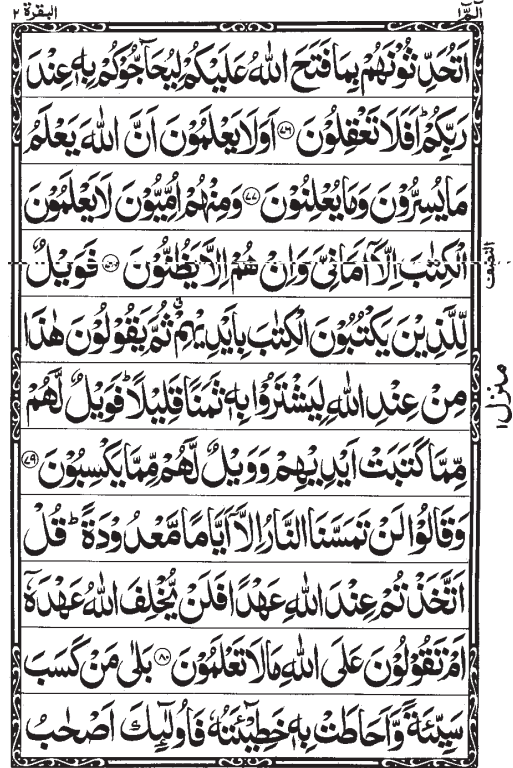 الٓمّٓ ١
البقرة ٢
اَتُحَدِّثُوْنَهُمْ بِمَا فَتَحَ اللّٰهُ عَلَيْكُمْ لِيُحَآجُّوْكُمْ بِهٖ عِنْدَ
رَبِّكُمْ ؕ اَفَلَا تَعْقِلُوْنَ ﴿۷۶﴾ اَوَلَا يَعْلَمُوْنَ اَنَّ اللّٰهَ يَعْلَمُ
مَا يُسِرُّوْنَ وَمَا يُعْلِنُوْنَ ﴿۷۷﴾ وَمِنْهُمْ اُمِّيُّوْنَ لَا يَعْلَمُوْنَ
الْكِتٰبَ اِلَّاۤ اَمَانِىَّ وَاِنْ هُمْ اِلَّا يَظُنُّوْنَ ﴿۷۸﴾ فَوَيْلٌ
لِّلَّذِيْنَ يَكْتُبُوْنَ الْكِتٰبَ بِاَيْدِيْهِمْ ۗ ثُمَّ يَقُوْلُوْنَ هٰذَا
مِنْ عِنْدِ اللّٰهِ لِيَشْتَرُوْا بِهٖ ثَمَنًا قَلِيْلًا ؕ فَوَيْلٌ لَّهُمْ
مِّمَّا كَتَبَتْ اَيْدِيْهِمْ وَوَيْلٌ لَّهُمْ مِّمَّا يَكْسِبُوْنَ ﴿۷۹﴾
وَقَالُوْا لَنْ تَمَسَّنَا النَّارُ اِلَّاۤ اَيَّامًا مَّعْدُوْدَةً ؕ قُلْ
اَتَّخَذْتُمْ عِنْدَ اللّٰهِ عَهْدًا فَلَنْ يُّخْلِفَ اللّٰهُ عَهْدَهٗۤ
اَمْ تَقُوْلُوْنَ عَلَى اللّٰهِ مَا لَا تَعْلَمُوْنَ ﴿۸۰﴾ بَلٰى مَنْ كَسَبَ
سَيِّئَةً وَّاَحَاطَتْ بِهٖ خَطِيْٓئَتُهٗ فَاُولٰٓئِكَ اَصْحٰبُ
النصف
منزل ١